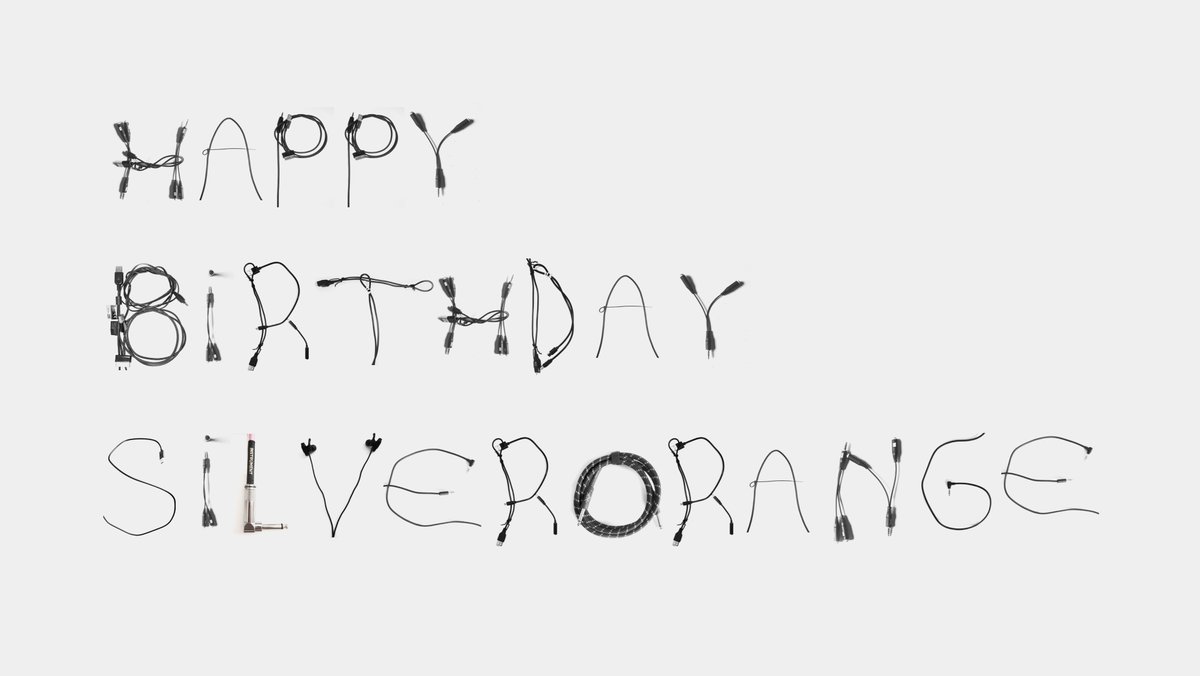 HAPPY
BiRTHDAY
SiLVERORANGE